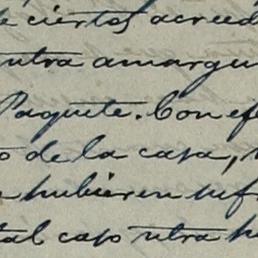 e ciertos acreed
ntra amargu
Paquete. Con efe
o de la casa,
hubieren suf
tal caso ntra